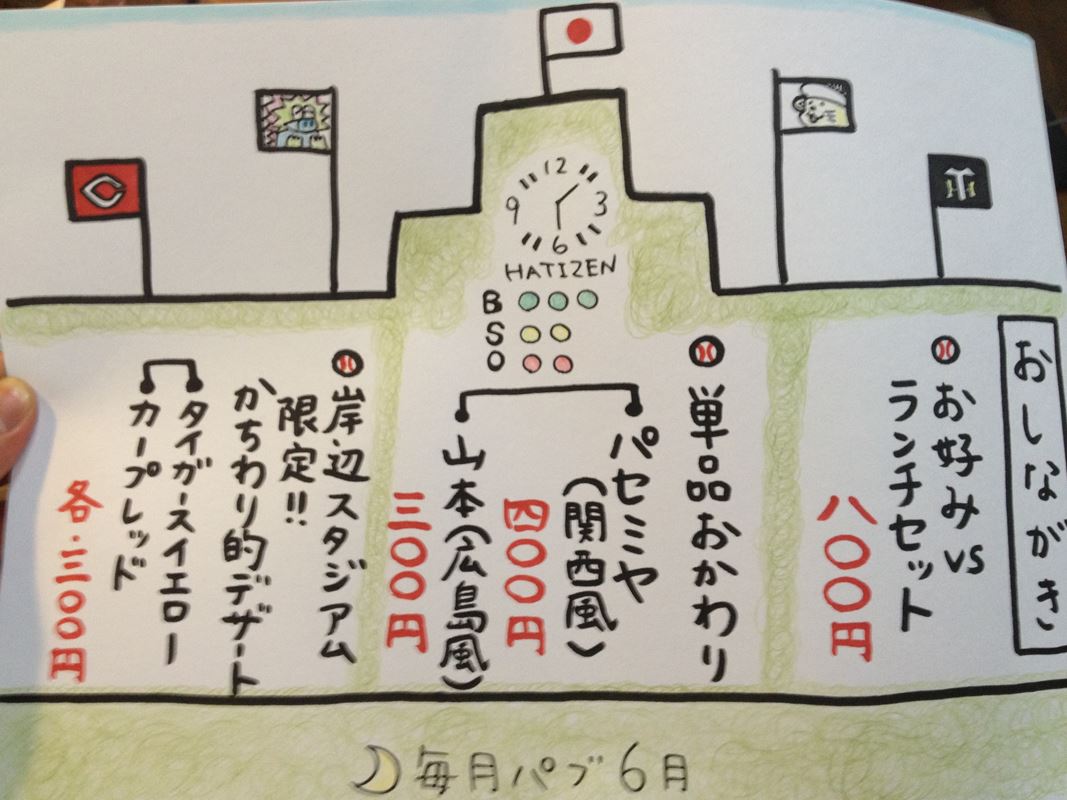 12
3
6
9
HATIZEN
B
S
O
おしながき
お好みvs
ランチセット
八〇〇円
単品おかわり
パセミヤ
(関西風)
四〇〇円
山本(広島風)
三〇〇円
岸辺スタジアム
限定!!
かちわり的デザート
タイガースイエロー
カープレッド
各・三〇〇円
毎月パブ6月